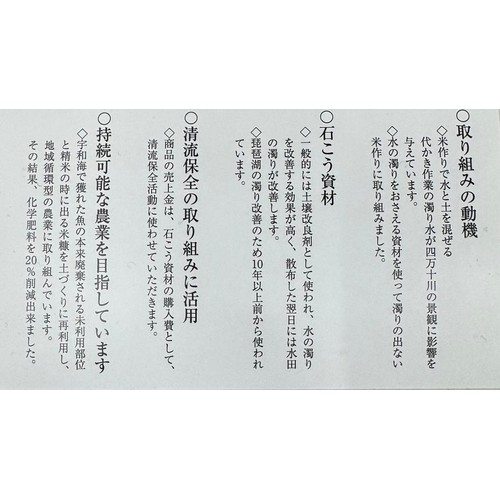 ○取り組みの動機
◇米作りで水と土を混ぜる
代かき作業の濁り水が四万十川の景観に影響を
与えています。
◇水の濁りをおさえる資材を使って濁りの出ない
米作りに取り組みました。
○石こう資材
◇一般的には土壌改良剤として使われ、水の濁り
を改善する効果が高く、散布した翌日には水田
の濁りが改善します。
◇琵琶湖の濁り改善のため10年以上前から使われ
ています。
○清流保全の取り組みに活用
◇商品の売上金は、石こう資材の購入費として、
清流保全活動に使わせていただきます。
○持続可能な農業を目指しています
◇宇和海で獲れた魚の本来廃棄される未利用部位
と精米の時に出る米糠を土づくりに再利用し、
地域循環型の農業に取り組んでいます。
その結果、化学肥料を20%削減出来ました。